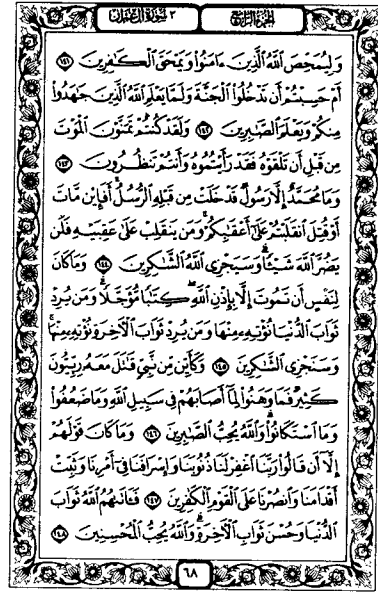 الجزء الرابع
٣ سورة آل عمران
وَلِيُمَحِّصَ ٱللَّهُ ٱلَّذِينَ ءَامَنُوا۟ وَيَمْحَقَ ٱلْكَٰفِرِينَ ١٤١
أَمْ حَسِبْتُمْ أَن تَدْخُلُوا۟ ٱلْجَنَّةَ وَلَمَّا يَعْلَمِ ٱللَّهُ ٱلَّذِينَ جَٰهَدُوا۟
مِنكُمْ وَيَعْلَمَ ٱلصَّٰبِرِينَ ١٤٢ وَلَقَدْ كُنتُمْ تَمَنَّوْنَ ٱلْمَوْتَ
مِن قَبْلِ أَن تَلْقَوْهُ فَقَدْ رَأَيْتُمُوهُ وَأَنتُمْ تَنظُرُونَ ١٤٣
وَمَا مُحَمَّدٌ إِلَّا رَسُولٌ قَدْ خَلَتْ مِن قَبْلِهِ ٱلرُّسُلُ ۚ أَفَإِي۟ن مَّاتَ
أَوْ قُتِلَ ٱنقَلَبْتُمْ عَلَىٰٓ أَعْقَٰبِكُمْ ۚ وَمَن يَنقَلِبْ عَلَىٰ عَقِبَيْهِ فَلَن
يَضُرَّ ٱللَّهَ شَيْـًٔا ۗ وَسَيَجْزِى ٱللَّهُ ٱلشَّٰكِرِينَ ١٤٤ وَمَا كَانَ
لِنَفْسٍ أَن تَمُوتَ إِلَّا بِإِذْنِ ٱللَّهِ كِتَٰبًا مُّؤَجَّلًا ۗ وَمَن يُرِدْ
ثَوَابَ ٱلدُّنْيَا نُؤْتِهِۦ مِنْهَا وَمَن يُرِدْ ثَوَابَ ٱلْءَاخِرَةِ نُؤْتِهِۦ مِنْهَا ۚ
وَسَنَجْزِى ٱلشَّٰكِرِينَ ١٤٥ وَكَأَيِّن مِّن نَّبِىٍّ قَٰتَلَ مَعَهُۥ رِبِّيُّونَ
كَثِيرٌ فَمَا وَهَنُوا۟ لِمَآ أَصَابَهُمْ فِى سَبِيلِ ٱللَّهِ وَمَا ضَعُفُوا۟
وَمَا ٱسْتَكَانُوا۟ ۗ وَٱللَّهُ يُحِبُّ ٱلصَّٰبِرِينَ ١٤٦ وَمَا كَانَ قَوْلَهُمْ
إِلَّآ أَن قَالُوا۟ رَبَّنَا ٱغْفِرْ لَنَا ذُنُوبَنَا وَإِسْرَافَنَا فِىٓ أَمْرِنَا وَثَبِّتْ
أَقْدَامَنَا وَٱنصُرْنَا عَلَى ٱلْقَوْمِ ٱلْكَٰفِرِينَ ١٤٧ فَـَٔاتَىٰهُمُ ٱللَّهُ ثَوَابَ
ٱلدُّنْيَا وَحُسْنَ ثَوَابِ ٱلْءَاخِرَةِ ۗ وَٱللَّهُ يُحِبُّ ٱلْمُحْسِنِينَ ١٤٨
٦٨